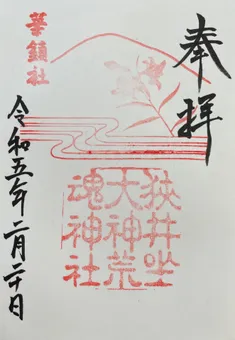 奉拝
狭井坐
大神荒
魂神社
華鎮社
令和五年二月二十日